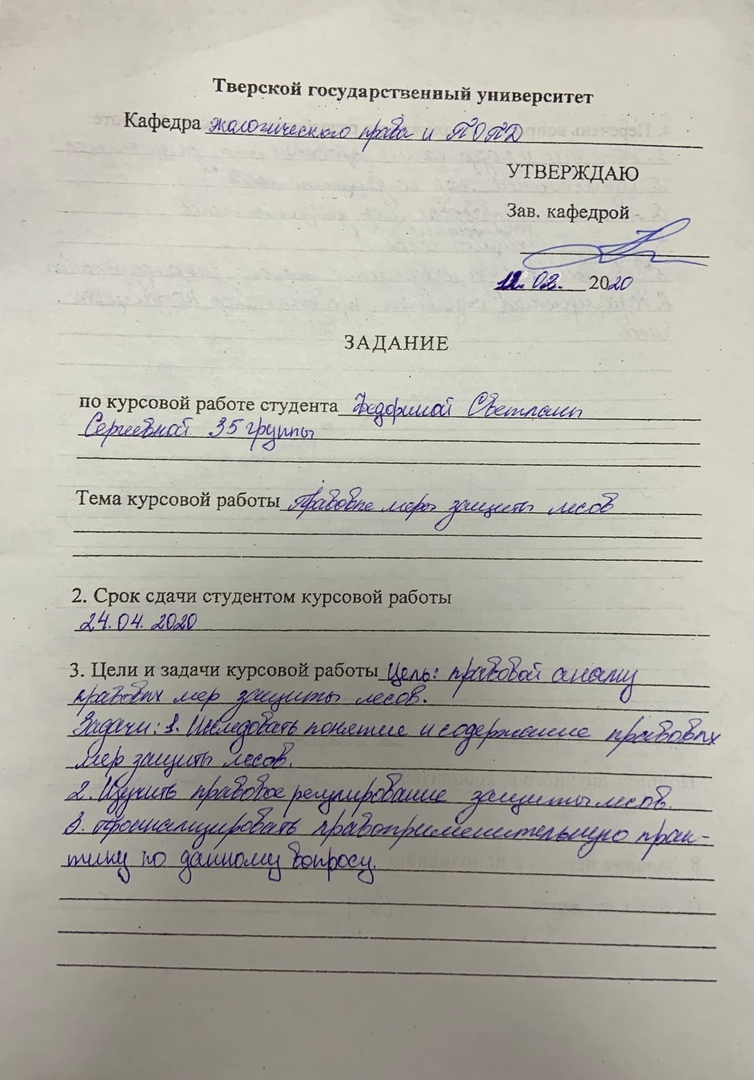 Тверской государственный университет
Кафедра экологического права и ПОПД
УТВЕРЖДАЮ
Зав. кафедрой
12.02. 2020
ЗАДАНИЕ
по курсовой работе студента Федориной Светланы
Сергеевной 35 группы
Тема курсовой работы Правовые меры защиты лесов
2. Срок сдачи студентом курсовой работы
24.04.2020
3. Цели и задачи курсовой работы Цель: правовой анализ
правовых мер защиты лесов.
Задачи: 1. Исследовать понятие и содержание правовых
мер защиты лесов.
2. Изучить правовое регулирование защиты лесов.
3. Проанализировать правоприменительную прак-
тику по данному вопросу.